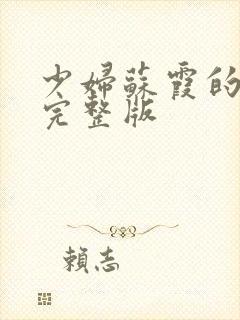 少婦蘇霞的
完整版
賴志